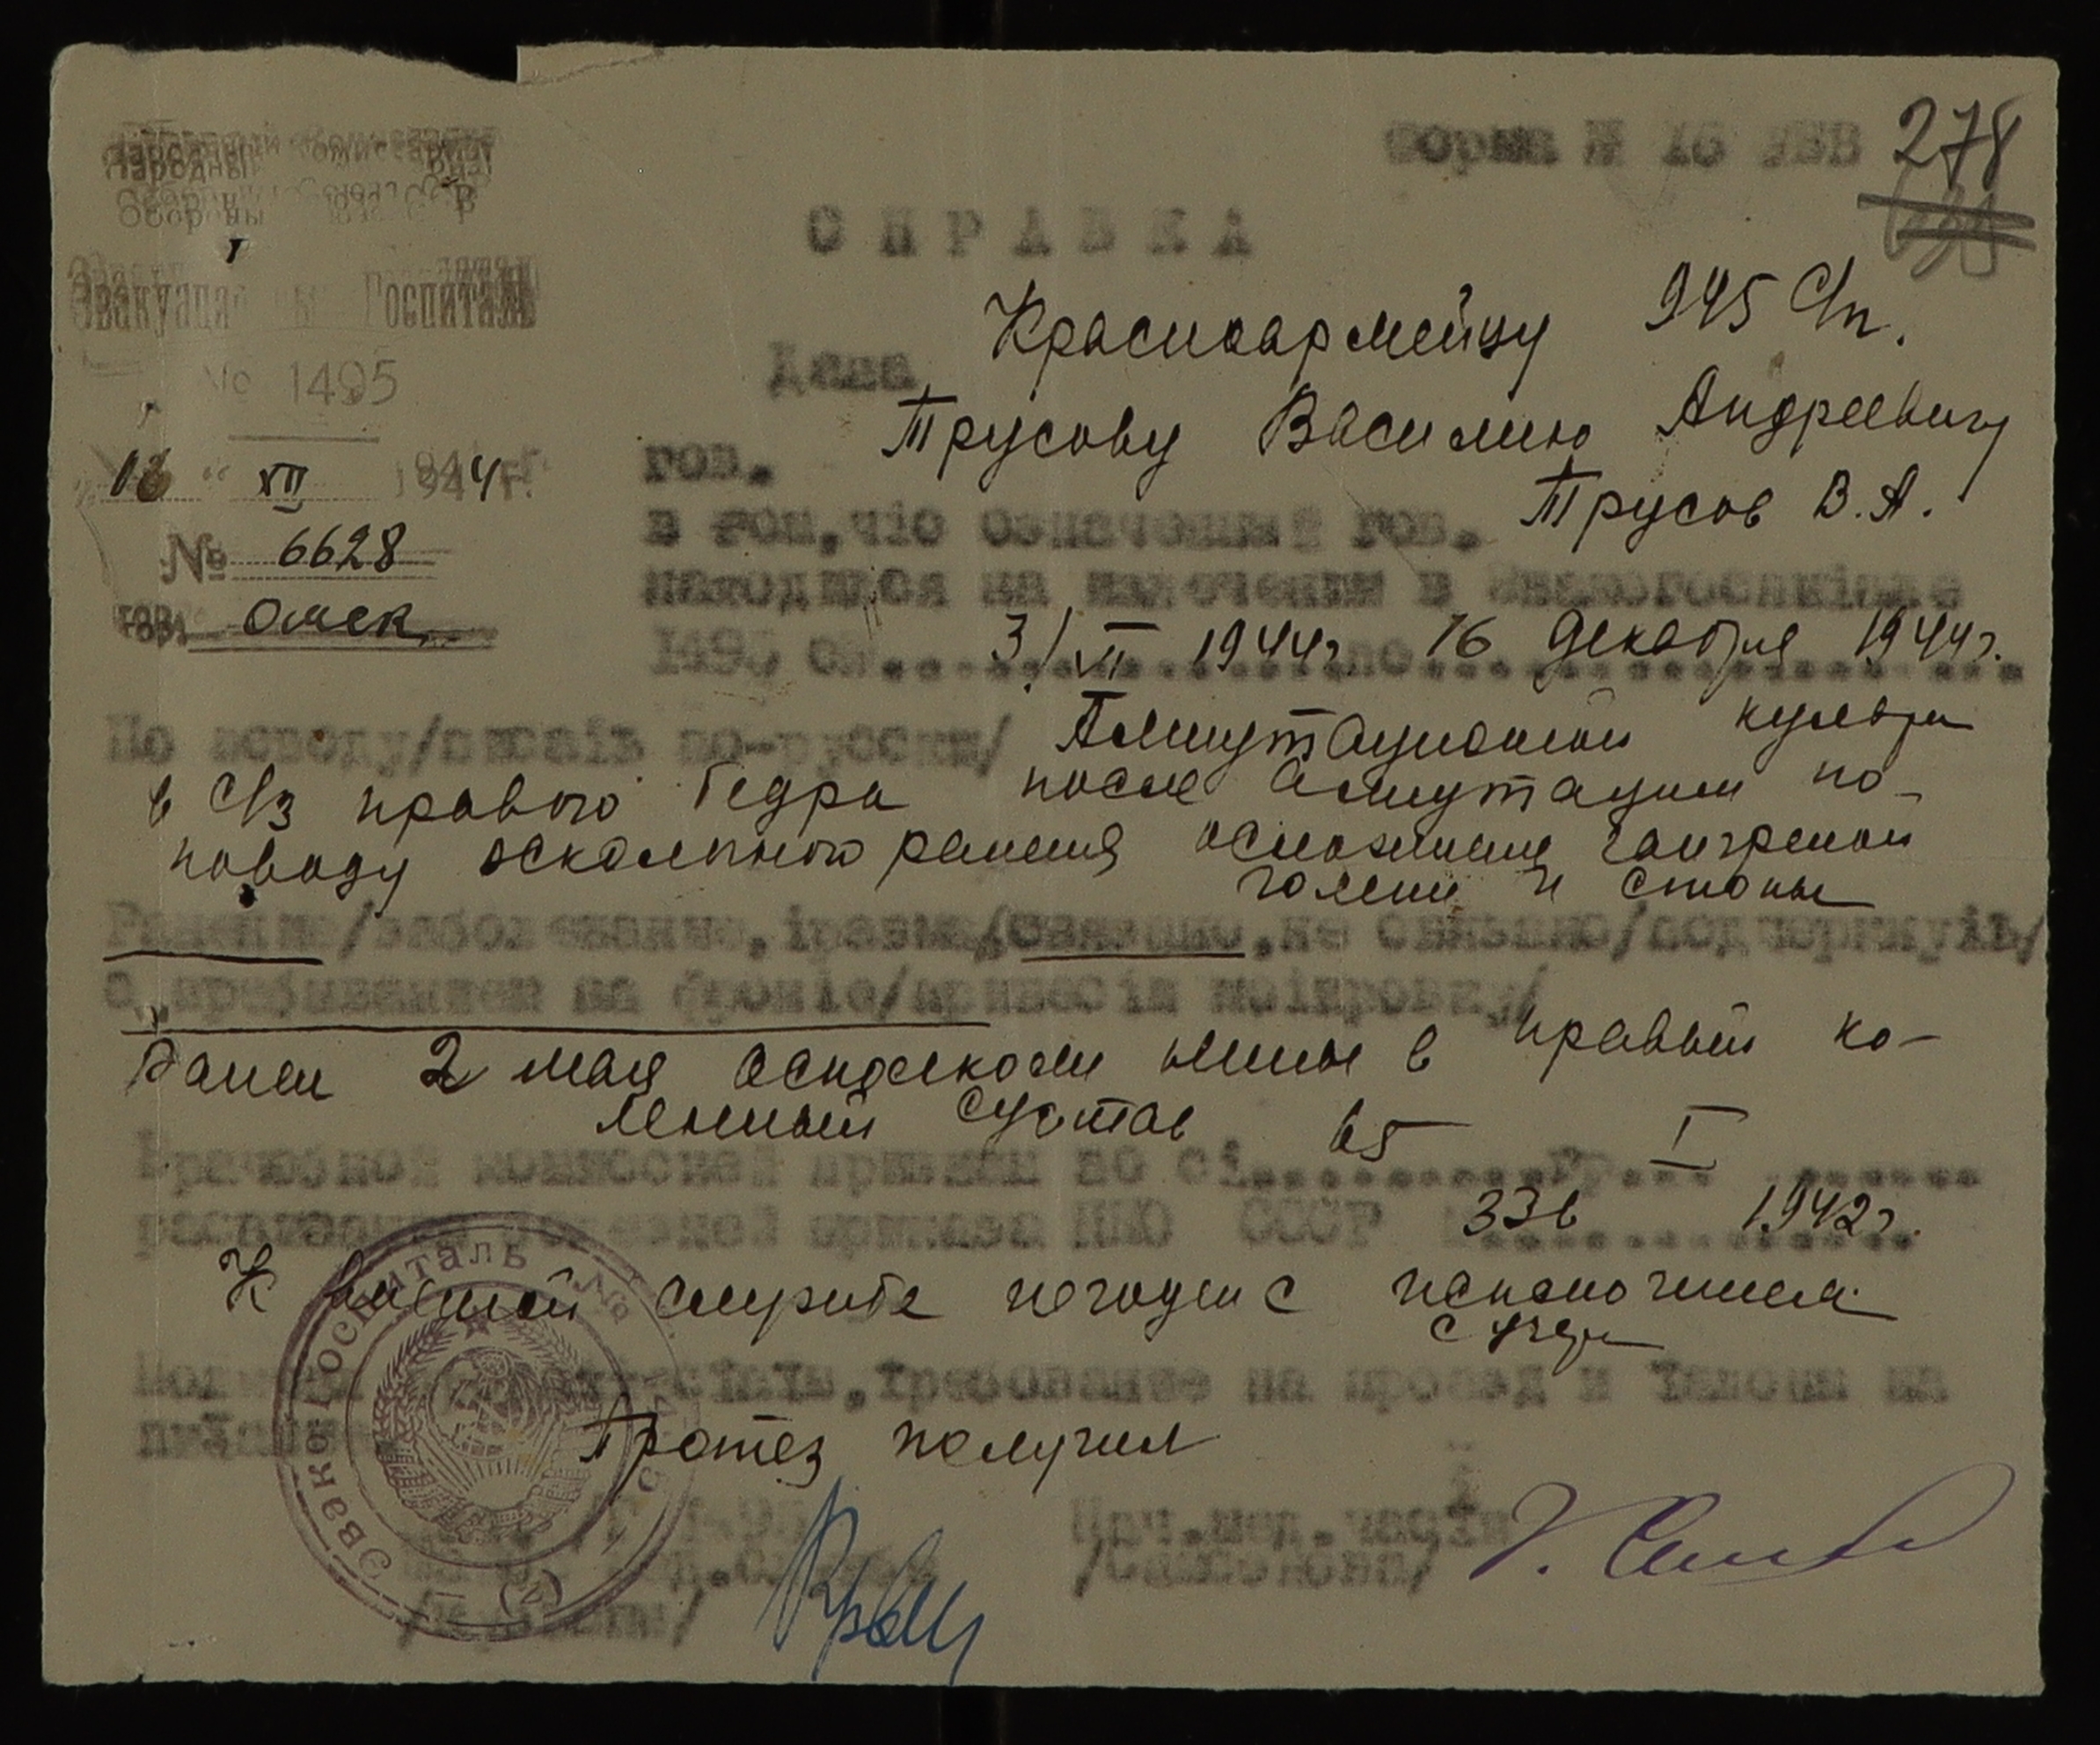 Форма № 16 УВВ
278
Народный Комиссариат
Обороны Союза ССР
Эвакуационный Госпиталь
№ 1495
16 XII 1944 г.
№ 6628
гор. Омск
СПРАВКА
Дана Красноармейцу 945 С/п.
тов. Трусову Василию Андреевичу
в том, что означенный тов. Трусов В.А.
находился на излечении в Эвакогоспитале
1495 с 3/VII 1944г. по 16 декабря 1944г.
По поводу/писать по-русски/ Ампутационной культи
в С/з правого бедра после ампутации по-
поводу осколочного ранения осложнения гангреной
голени и стопы
Ранение/заболевание, травма/связано, не связано/подчеркнуть/
с пребыванием на фронте/привести мотировку/
Ранен 2 мая осколком мины в правый ко-
ленный сустав
Врачебной комиссией признан по ст. 65 гр. I
расписания болезней приказа НКО СССР 336 1942г.
К военной службе негоден с исключением
с учета
требование на проезд и талоны на
Протез получил
Эвакогоспиталь №
Нач. мед. части